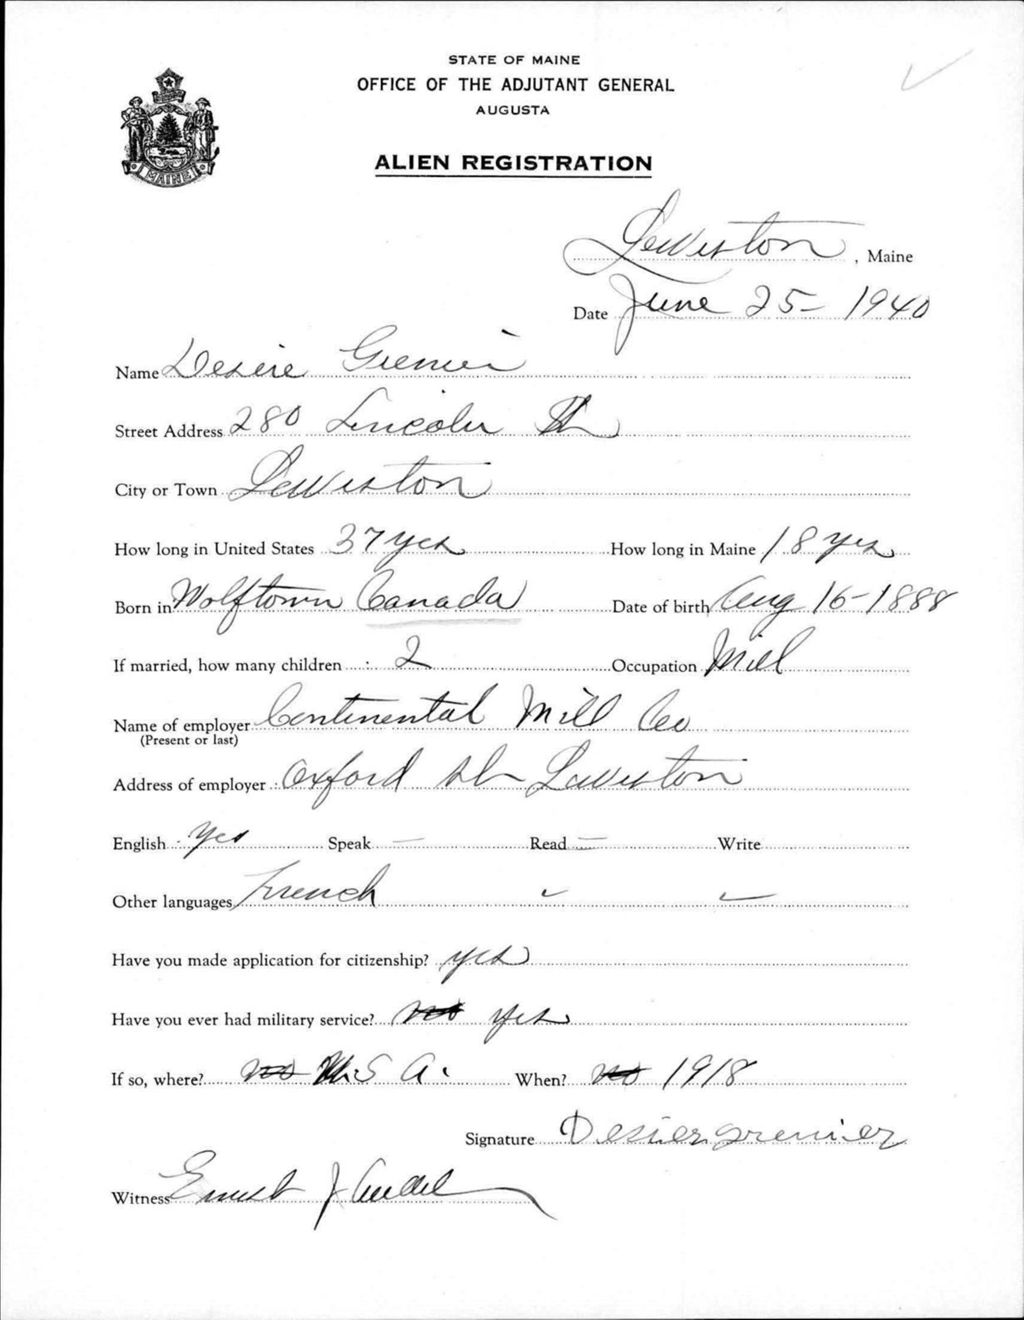 STATE OF MAINE
OFFICE OF THE ADJUTANT GENERAL
AUGUSTA
MAINE
ALIEN REGISTRATION
Lewiston, Maine
Date June 25- 1940
Name Desire Grenier
Street Address 280 Lincoln St
City or Town Lewiston
How long in United States 37 yrs How long in Maine 18 yrs
Born in Wolftown Canada Date of birth Aug 16-1888
If married, how many children 2 Occupation Mill
Name of employer Continental Mill Co
(Present or last)
Address of employer Oxford St Lewiston
English yes Speak — Read — Write
Other languages French
Have you made application for citizenship? yes
Have you ever had military service? no yes
If so, where? no U.S A. When? no 1918
Signature Desier grenier
Witness Ernest J